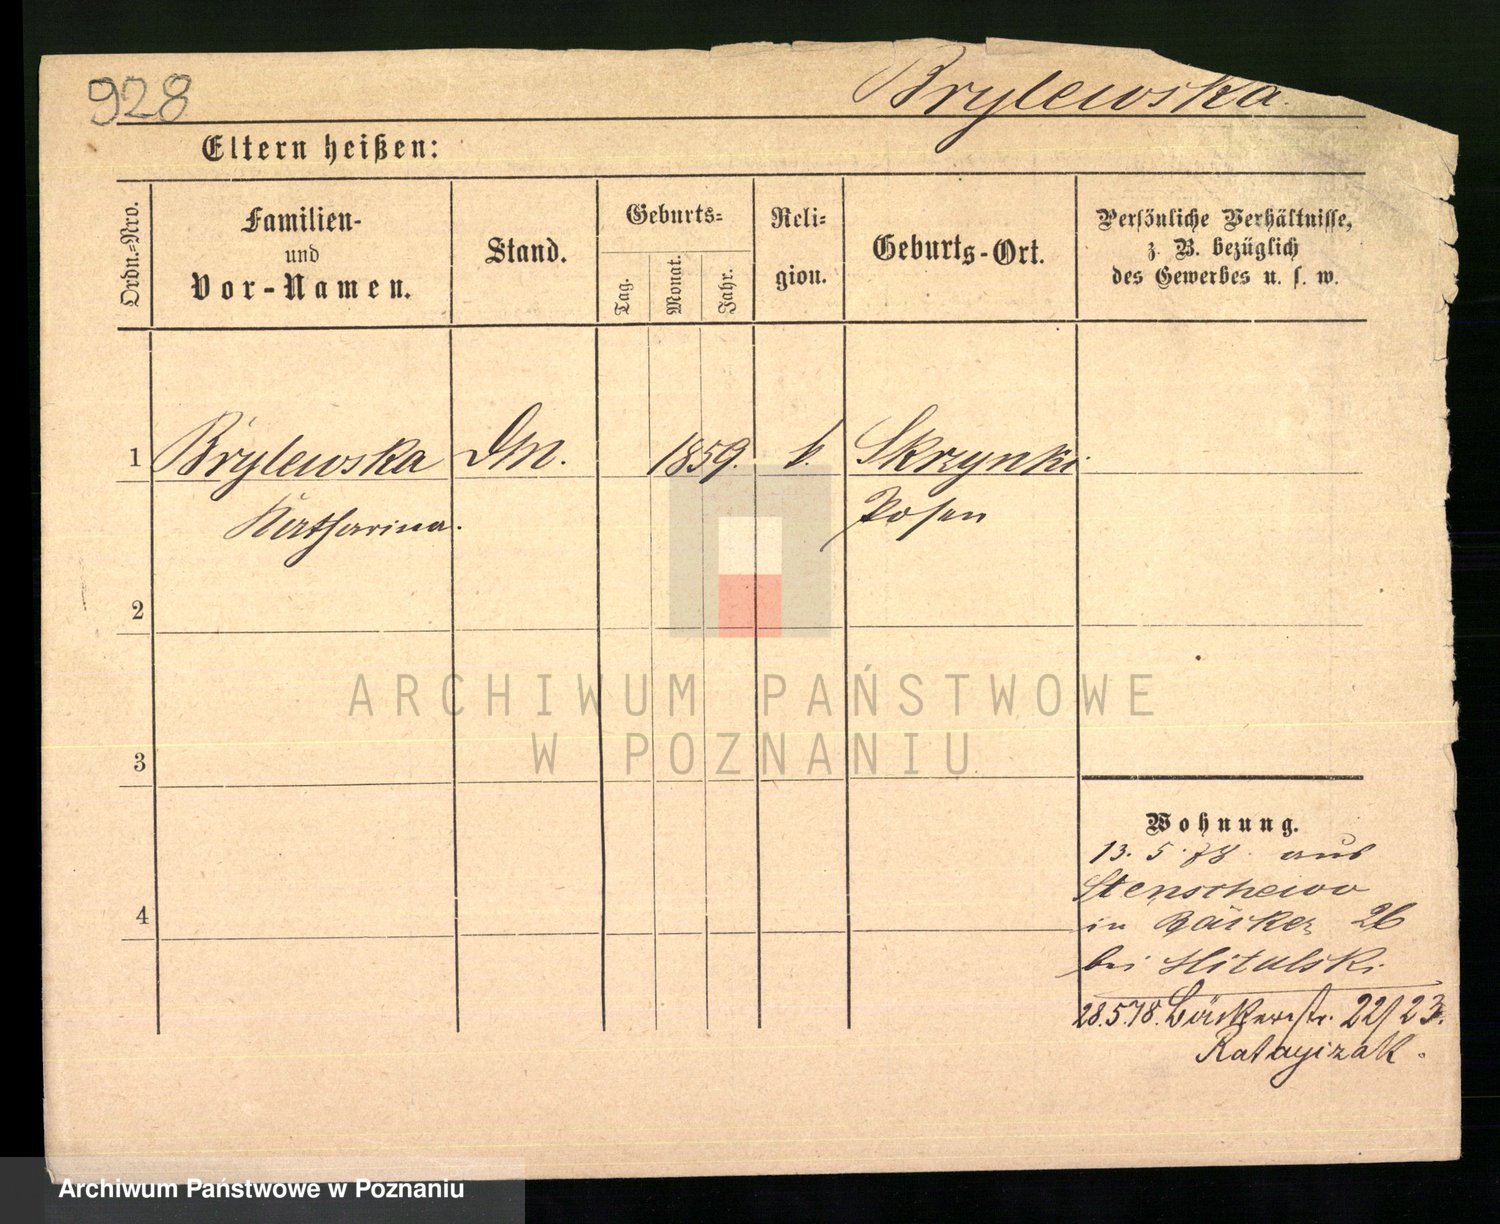 928
Brylewska.
Eltern heißen:
Ordn.-Nro.
Familien-
und
Vor-Namen.
Stand.
Geburts-
Tag.
Monat.
Jahr.
Reli-
gion.
Geburts-Ort.
Persönliche Verhältnisse,
z. B. bezüglich
des Gewerbes u. s. w.
1 Brylewska DM. 1859. k. Skrzynki
Katharina. Posen
2
3
4
ARCHIWUM PAŃSTWOWE
W POZNANIU
Wohnung.
13. 5. 78. aus
Stenschewo
in Bäcker 26
bei
28.5.78. Bäckerstr. 22/23.
Ratayizak.
Archiwum Państwowe w Poznaniu